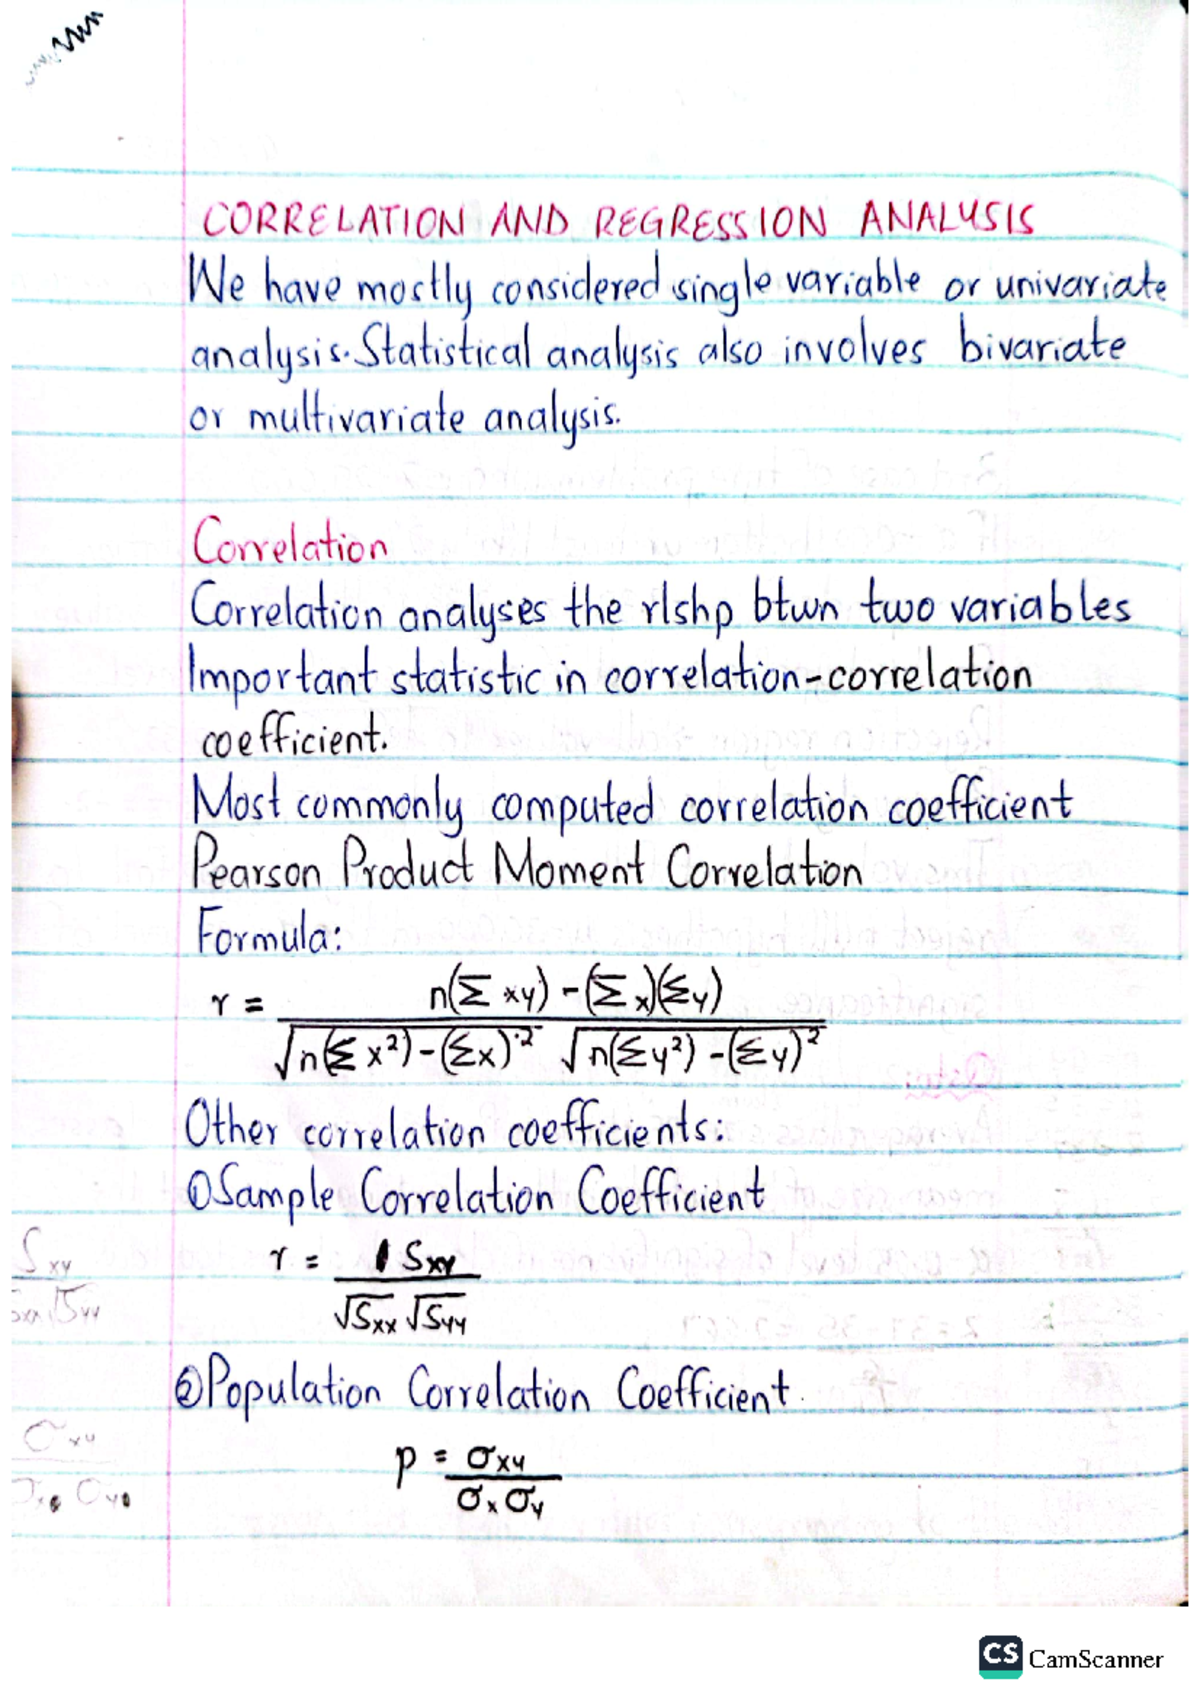 CORRELATION AND REGRESSION ANALYSIS
We have mostly considered single variable or univariate
analysis. Statistical analysis also involves bivariate
or multivariate analysis.
Correlation
Correlation analyses the rlshp btwn two variables
Important statistic in correlation-correlation
coefficient.
Most commonly computed correlation coefficient
Pearson Product Moment Correlation
Formula:
r = n(Σxy) - (Σx)(Σy) / √n(Σx²) - (Σx)² √n(Σy²) - (Σy)²
Other correlation coefficients:
①Sample Correlation Coefficient
r = Sxy / √Sxx √Syy
②Population Correlation Coefficient.
p = σxy / σx σy
CS CamScanner